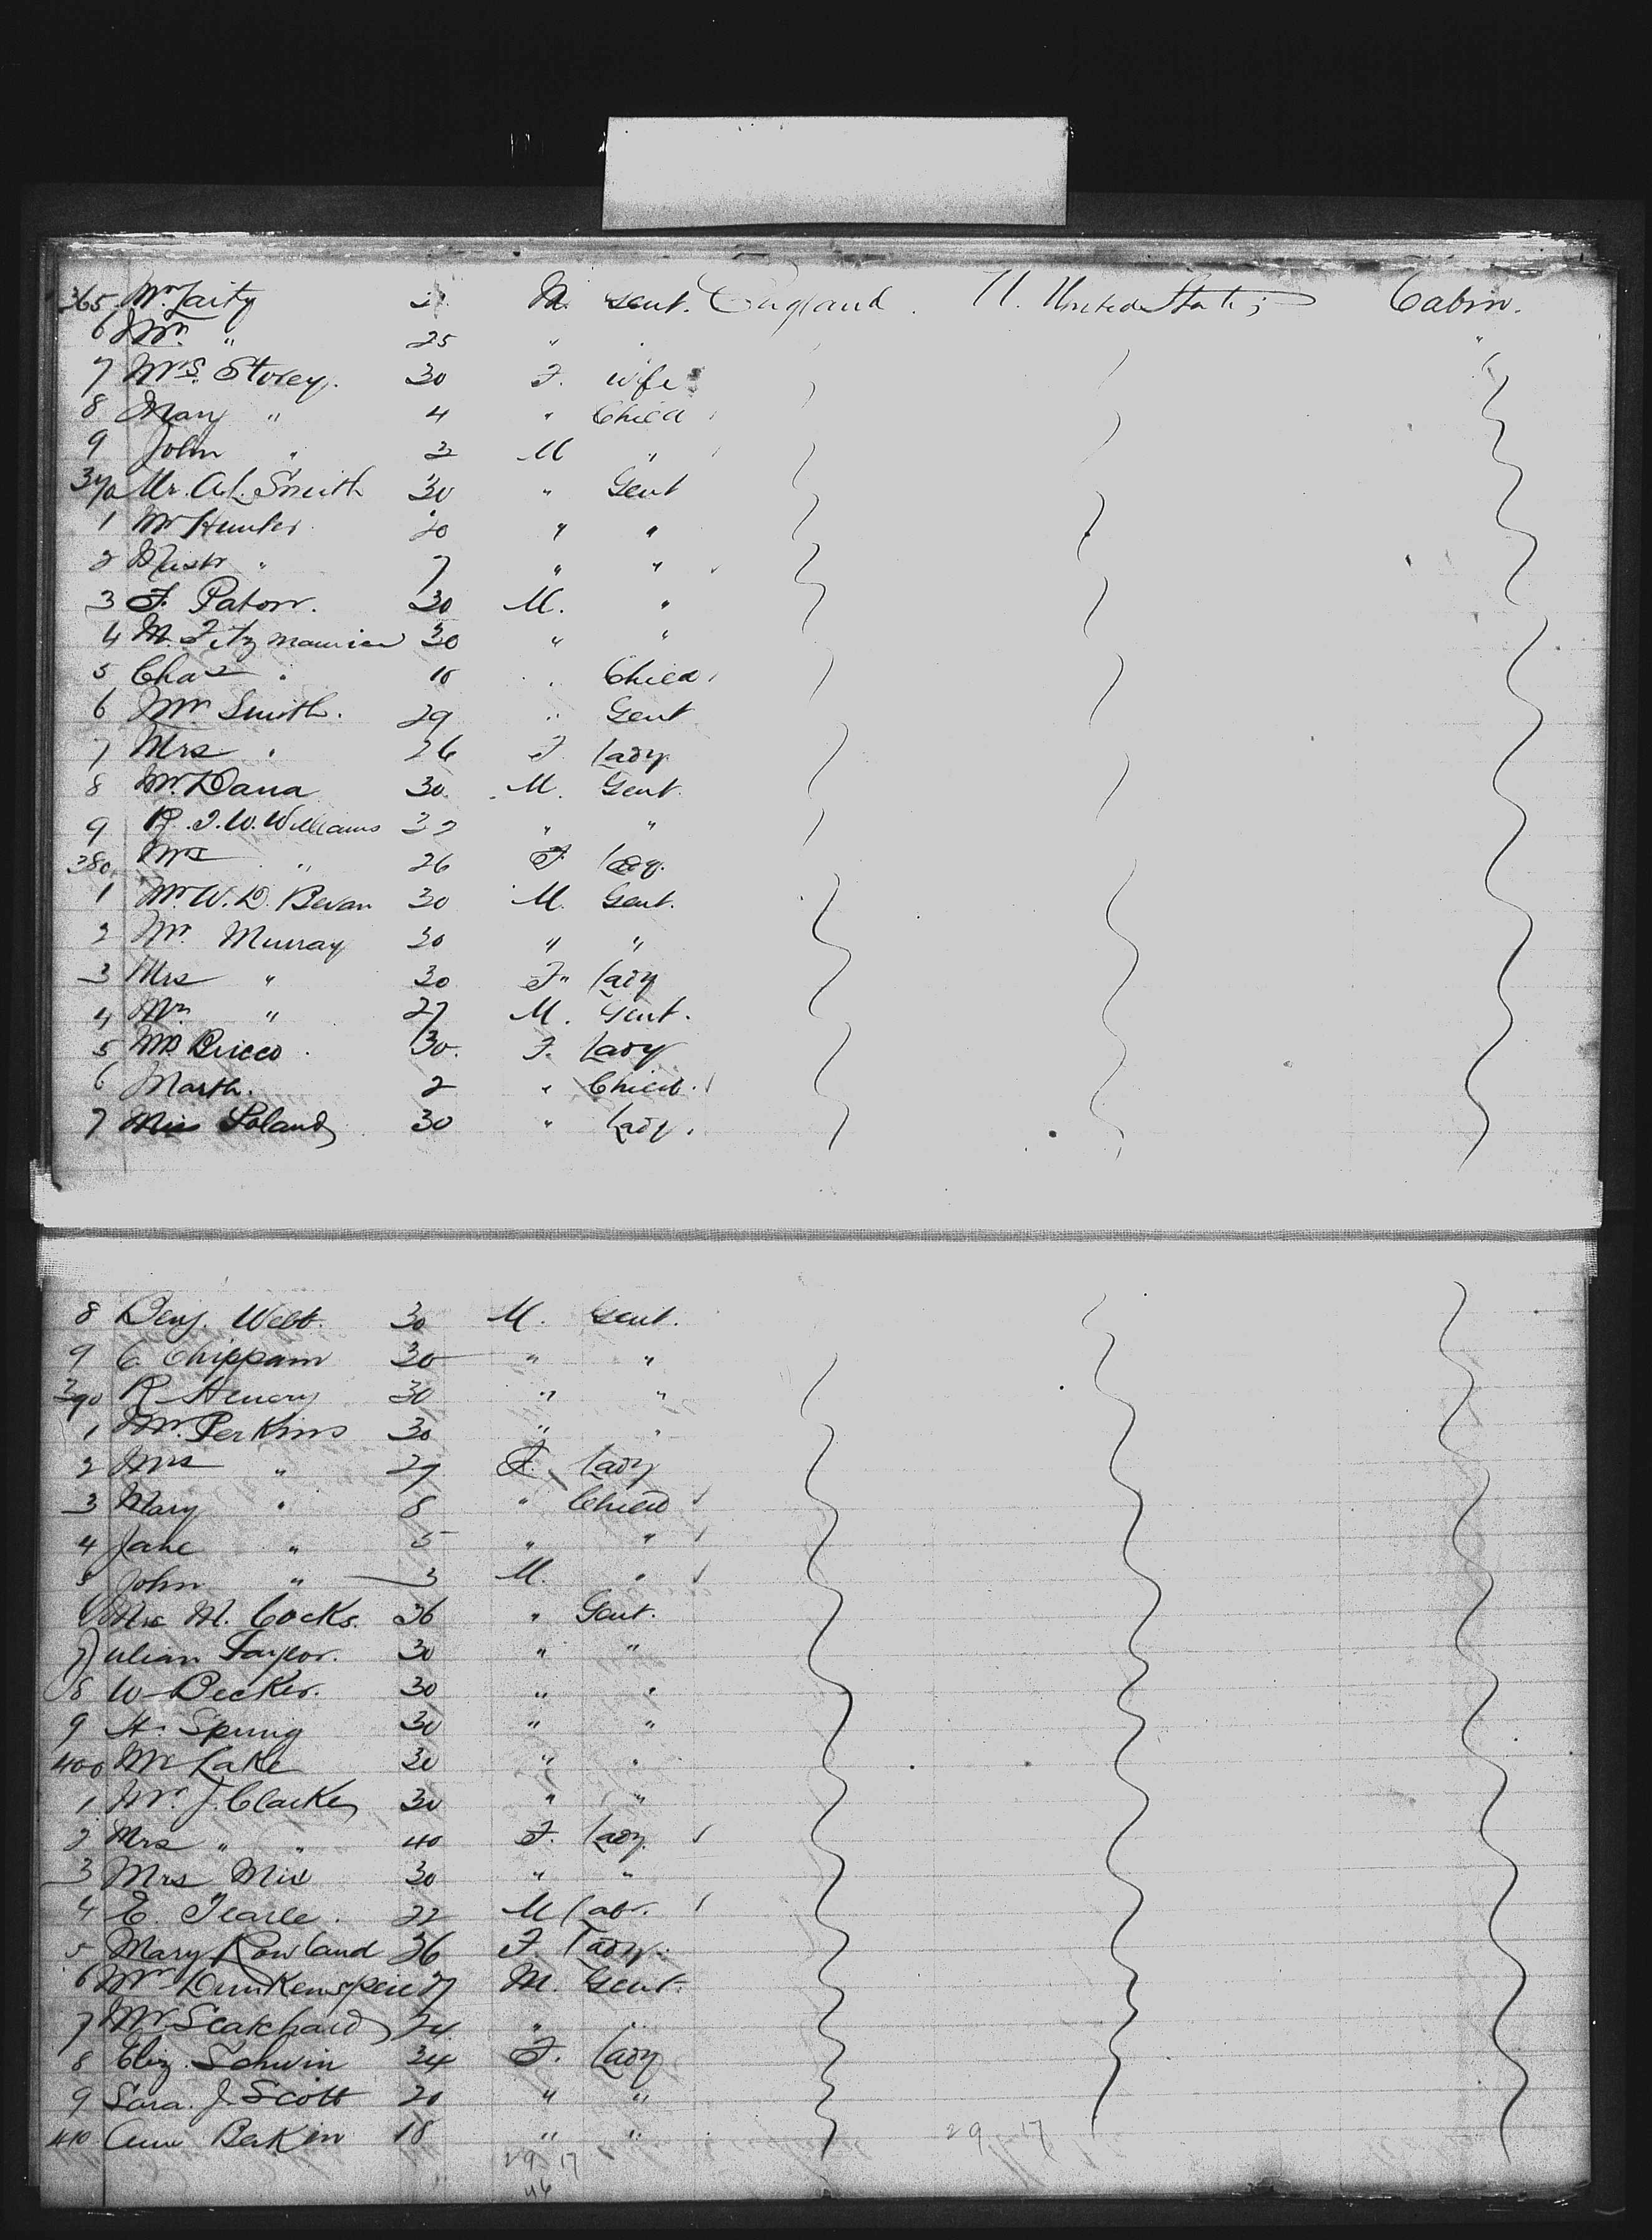 365 Mr Laity M. Gent. England. U. United States Cabin.
6 Mr. " 25 " . "
7 Mrs. Storey. 30 F. wife
8 Mary " 4 " Child
9 John " 2 M "
370 Mr. A. L. Smith 30 " Gent
1 Mr Hunter 20 " "
2 Mastr " 7 " "
3 F. Paton. 30 M. "
4 M. Fitzmaurice 30 " "
5 Chas " 10 " Child
6 Mr Smith. 29 " Gent
7 Mrs " 26 F Lady
8 Mr. Dana 30. M. Gent.
9 R. J. W. Williams 32 " "
380 Mrs " 26 F Lady.
1 Mr. W. D. Bevan 30 M. Gent.
2 Mr. Murray 30 " "
3 Mrs " 30 F" Lady
4 Mr " 27 M. Gent.
5 Mrs Bricco. 30. F. Lady
6 Marth. 2 " Child.
7 Miss Soland 30 " Lady.
8 Benj. Webb. 30 M. Gent.
9 C. Chippam 30 " "
390 R Henory 30 " "
1 Mr. Perkins 30 " "
2 Mrs " 27 F. Lady
3 Mary " 8 " Child
4 Jane " 5 " "
5 John " 3 M. "
6 Mr M. Cocks. 36 " Gent.
7 Julian Taylor. 30 " "
8 W Becker. 30 " "
9 H. Spring 30 " "
400 Mr Lake 30 " "
1 Mr. J. Clarke 30 " "
2 Mrs " " 40 F. Lady.
3 Mrs Mix 30 " "
4 E. Tearle. 22 M Lab.
5 Mary Rowland 36 F. Lady.
6 Mr Dunkenspeil 27 M. Gent.
7 Mr Scatchard 24 " "
8 Eliz. Schwin 34 F. Lady
9 Sara. J Scott 20 " "
410 Ann Beakin 18 " " 29 17
29 17
46